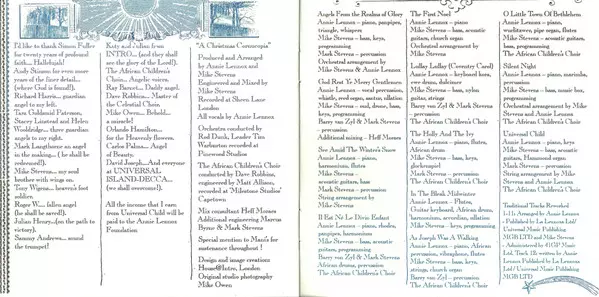 I'd like to thank Simon Fuller
for twenty years of profound
faith... Hallelujah!
Andy Stinson for even more
years of the finer details...
(where God is found!).
Richard Harris... guardian
angel to my left.
Tara Goldsmid Paterson,
Stacey Linstead and Helen
Wooldridge... three guardian
angels to my right.
Mark Langthorne an angel
in the making... ( he shall be
redeemed!).
Mike Stevens... my and
brother with wings on.
Tony Wigens... heaven's foot
soldier.
Rags W... fallen angel
(he shall be saved!).
Julian Henry...(on the path to
victory).
Sammy Andrews... sound
the trumpet!
Katy and Julian from
INTRO... (and they shall
see the glory of the Lord!).
The African Children's
Choir... Angelic voices.
Ray Burnet... Daddy angel.
Dave Robbins... Master of
the Celestial Choir.
Mike Owen... Behold...
a miracle!
Orlando Hamilton...
for the Heavenly flowers.
Carlos Palma... Angel
of Beauty.
David Joseph...And everyone
at UNIVERSAL
ISLAND-DECCA...
(we shall overcome!).
All the income that I earn
from Universal Child will be
paid to the Annie Lennox
Foundation
"A Christmas Cornucopia"
Produced and Arranged
by Annie Lennox and
Mike Stevens
Engineered and Mixed by
Mike Stevens
Recorded at Sheen Lane
London
All vocals by Annie Lennox
Orchestra conducted by
Rod Dunk, Leader Tim
Warburton recorded at
Pinewood Studios
The African Children's Choir
conducted by Dave Robbins,
engineered by Matt Allison,
recorded at 'Milestone Studios'
Capetown
Mix consultant Heff Moraes
Additional engineering Marcus
Byrne & Mark Stevens
Special mention to Mani's for
sustenance throughout !
Design and image creations
House@Intro, London
Original studio photography
Mike Owen
Angels From the Realms of Glory
Annie Lennox – piano, panpipes,
triangle, whispers
Mike Stevens – bass, keys,
programming
Mark Stevens
programming
Mark Stevens – percussion
Orchestral arrangement by
Mike Stevens & Annie Lennox
God Rest Ye Merry Gentlemen
Annie Lennox – vocal percussion,
whistle, reed organ, marimba, allation
Mike Stevens – snd, drone, bass,
keys, programming
Barry van Zyl & Mark Stevens
– percussion
Additional mixing – Heff Moraes
See Amid The Winter's Snow
Annie Lennox – piano,
harmonium, flutes
Mike Stevens –
acoustic guitars, bass
Mark Stevens – percussion
String arrangement by
Mike Stevens
Il Est Né Le Divin Enfant
Annie Lennox – piano, rhodes,
panpipes, harmonium
Mike Stevens – bass, acoustic
guitars, programming
Barry van Zyl & Mark Stevens
African drums, percussion
The African Children's Choir
The First Noel
Annie Lennox – piano
Mike Stevens – bass, acoustic
guitars, church organ
Orchestral arrangement by
Mike Stevens
Lullay Lullay (Coventry Carol)
Annie Lennox – keyboard hora,
ewe drum, dulcimer
Mike Stevens – bass, nylon
guitar, strings
Barry van Zyl & Mark Stevens
– percussion
The African Children's Choir
The Holly And The Ivy
Annie Lennox – piano, flutes,
African drum
Mike Stevens – bass, keys,
glockenspiel
Mark Stevens – percussion
The African Children's Choir
In The Bleak Midwinter
Annie Lennox – Flutes,
Guitar keyboard, African drum,
harmonium, accordion, allation
Mike Stevens – bass, keys,
programming
As Joseph Was A Walking
Annie Lennox – piano, African
percussion, vibraphone, flutes
Mike Stevens – bass, keys,
strings, church organ
Barry van Zyl & Mark Stevens
– percussion
The African Children's Choir
O Little Town Of Bethlehem
Annie Lennox – piano,
wurlitzer, pipe organ, flutes
Mike Stevens – acoustic guitar,
bass, programming
The African Children's Choir
Silent Night
Annie Lennox – piano, marimba,
percussion
Mike Stevens – bass, music box,
programming
Orchestral arrangement by Mike
Stevens and Annie Lennox
Universal Child
Annie Lennox – piano, keys
Mike Stevens – bass, acoustic
guitars, Hammond organ
Mark Stevens – percussion
String arrangement by Mike
Stevens and Annie Lennox
The African Children's Choir
Traditional Tracks Reworked
1-11: Arranged by Annie Lennox
– Published by La Lennoxa Ltd/
Universal Music Publishing
MGB LTD and Mike Stevens
– Administered by 41GP Music
Ltd. Track 12: written by Annie
Lennox Published by La Lennoxa
Ltd/ Universal Music Publishing
MGB LTD